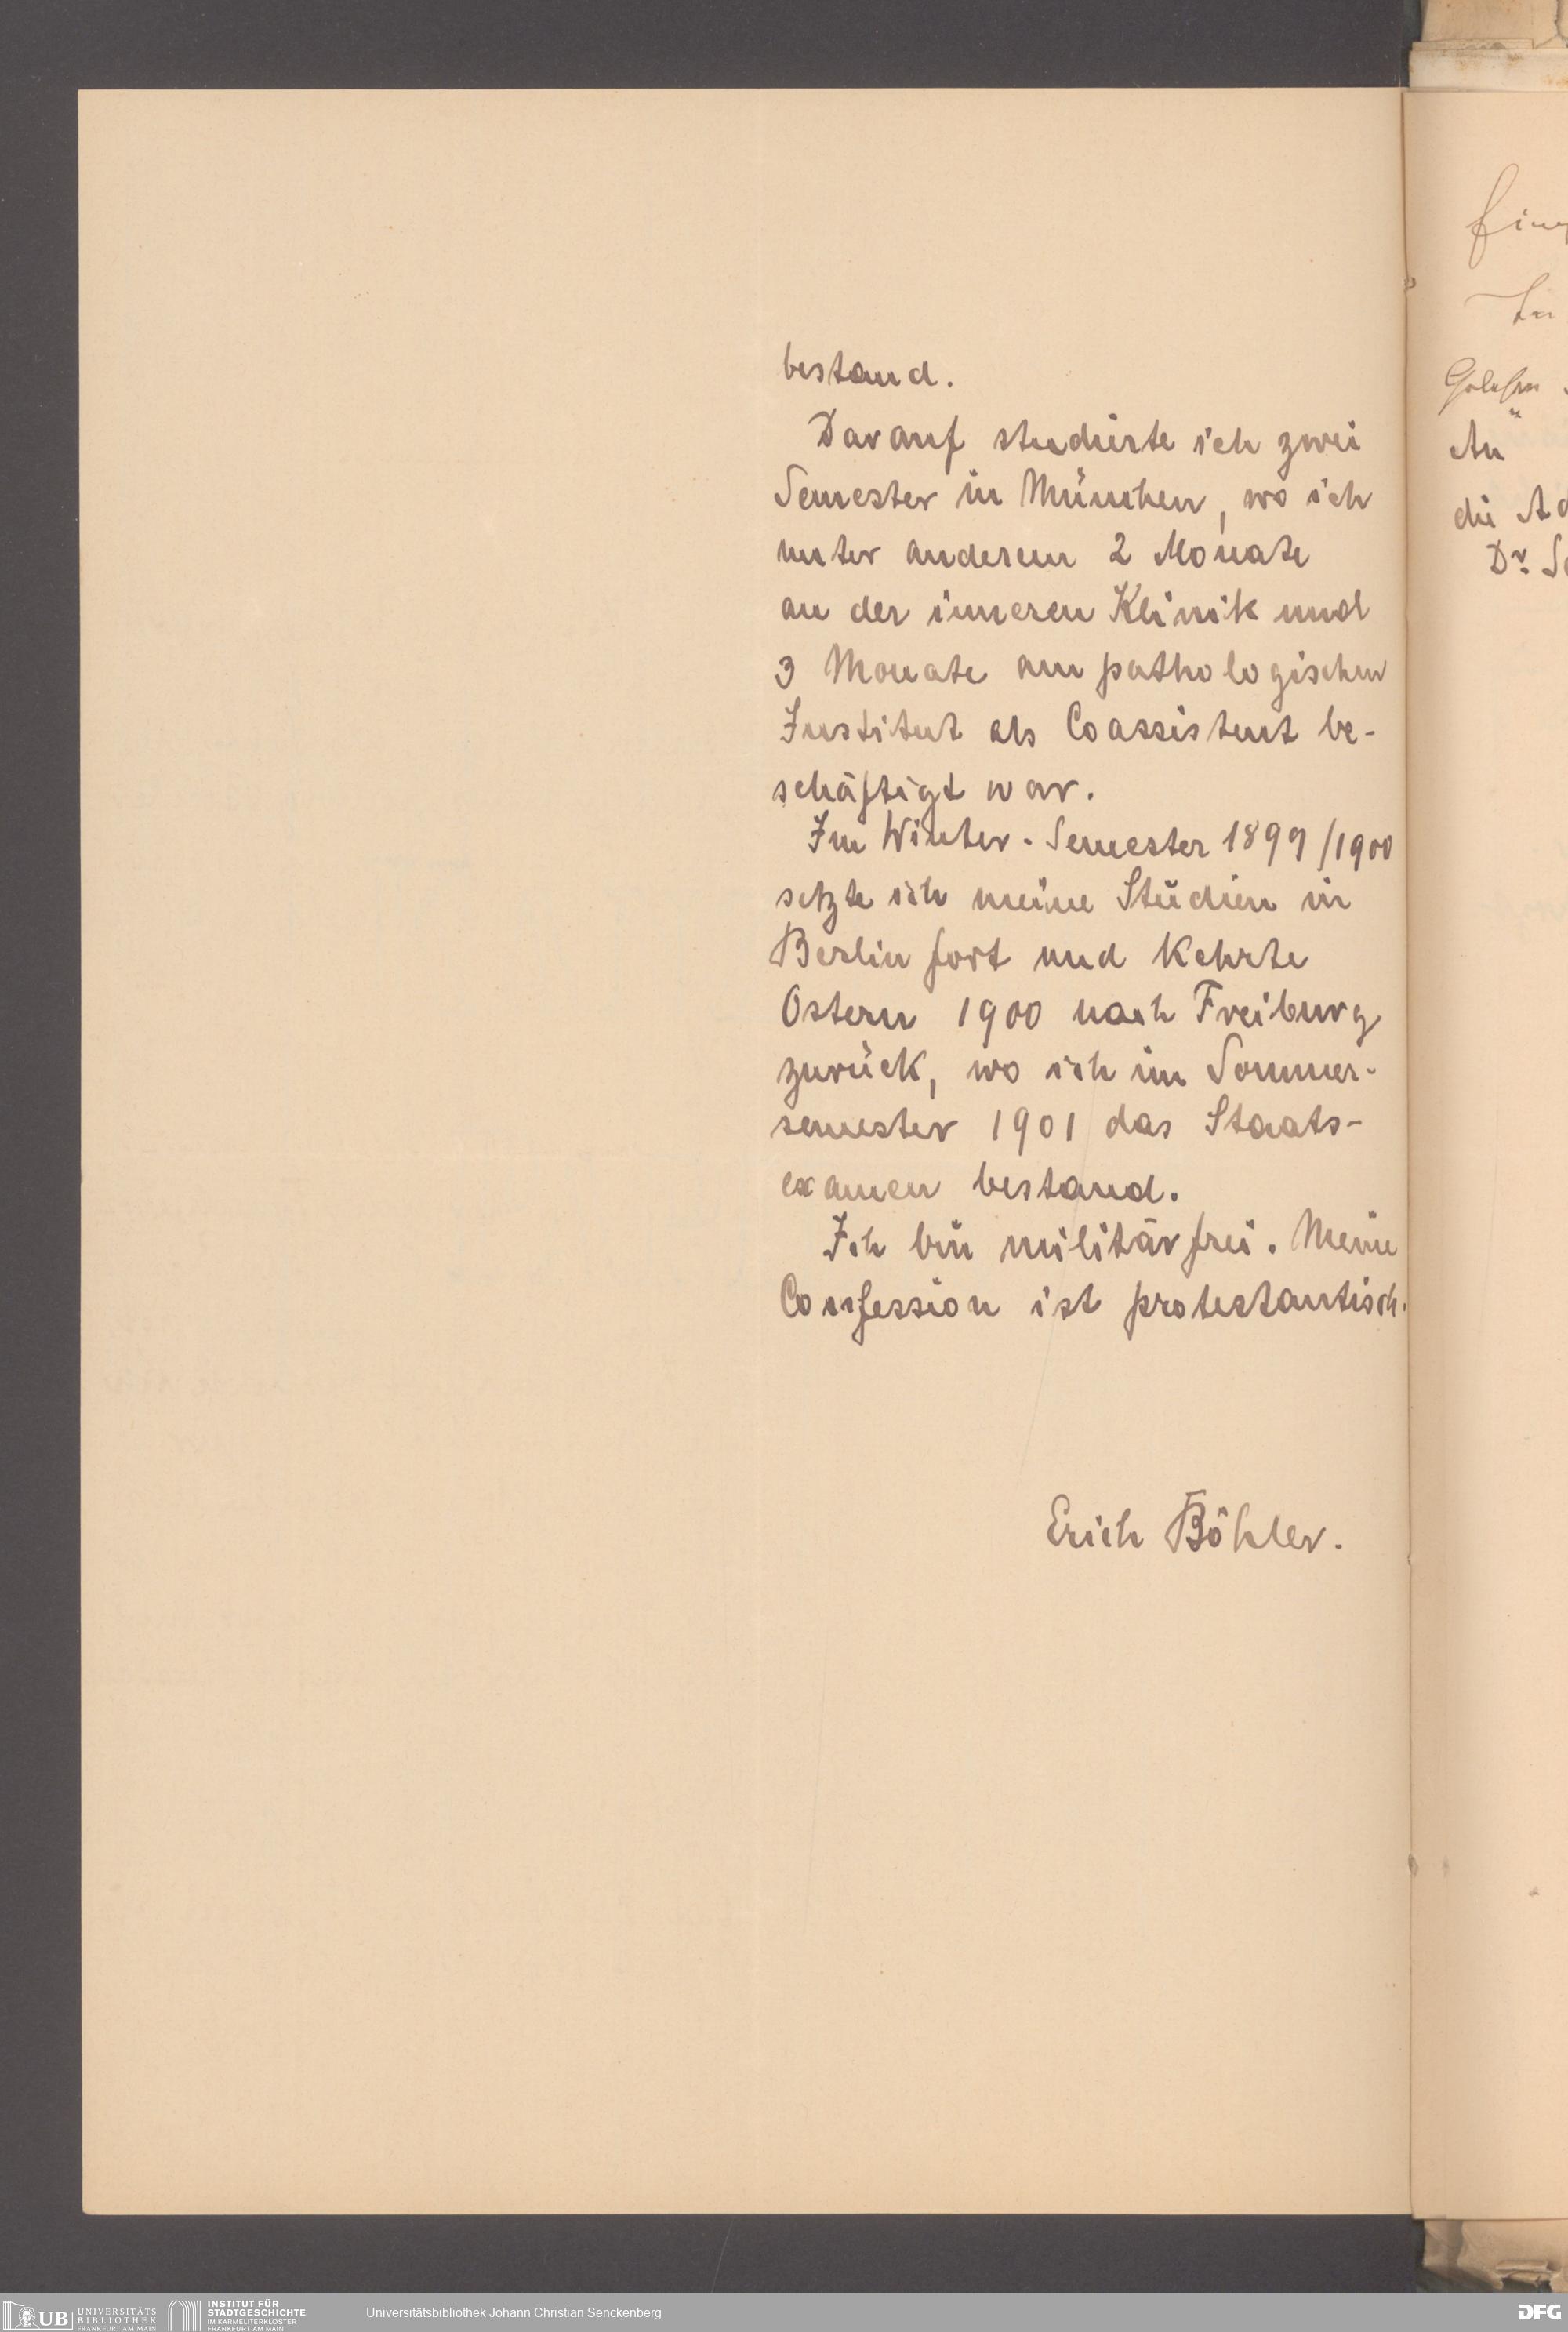 bestand.
Darauf studierte ich zwei
Semester in München, wo ich
unter anderem 2 Monate
an der inneren Klinik und
3 Monate am pathologischen
Institut als Coassistent be-
schäftigt war.
Im Winter-Semester 1899/1900
setzte ich meine Studien in
Berlin fort und kehrte
Ostern 1900 nach Freiburg
zurück, wo ich im Sommer-
semester 1901 das Staats-
examen bestand.
Ich bin militärfrei. Meine
Confession ist protestantisch.
Erich Böhler.
An
die Ad
Dr. Se
UB UNIVERSITÄTS
BIBLIOTHEK
FRANKFURT AM MAIN
INSTITUT FÜR
STADTGESCHICHTE
IM KARMELITERKLOSTER
FRANKFURT AM MAIN
Universitätsbibliothek Johann Christian Senckenberg
DFG